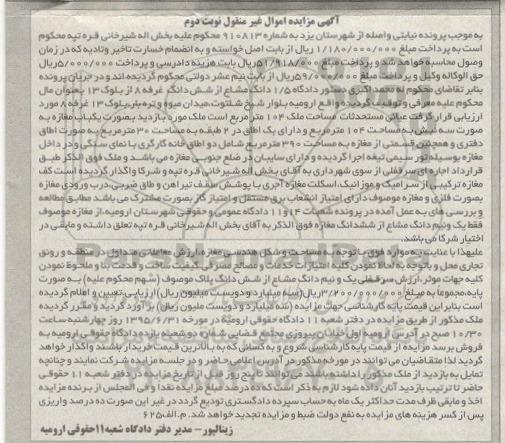 آگهی مزایده اموال غیر منقول نوبت دوم
به موجب پرونده نیابتی واصله از شهرستان یزد به شماره ۹۱۰۸۱۳ محکوم علیه بخش اله شیرخانی قره تپه محکوم
است به پرداخت مبلغ ۱/۱۸۰/۰۰۰/۰۰۰ ریال از بابت اصل خواسته و به انضمام خسارت تاخیر وتادیه که در زمان
وصول محاسبه خواهد شد و پرداخت مبلغ ۵۱/۹۱۸/۰۰۰ریال بابت هزینه دادرسی و پرداخت ۵/۰۰۰/۰۰۰ریال
حق الوکاله وکیل و پرداخت مبلغ ۵۹/۰۰۰/۰۰۰ریال از بابت نیم عشر دولتی محکوم گردیده اند و در جریان پرونده
بنابر تقاضای محکوم له محمد اکبری دستور دادگاه ۱/۵ دانگ مشاع از شش دانگ غرفه ۸ از بلوک ۱۳ بعنوان مال
محکوم علیه معرفی و توقیف گردیده واقع ارومیه بلوار شیخ شلتوت،میدان میوه و تره بار،بلوک ۱۳ غرفه ۸ مورد
ارزیابی قرار گرفت عیانی مستحدثات مساحت ملک ۱۰۴ متر مربع است ملک مورد بازدید بصورت یکباب مغازه به
صورت سه نبش به مساحت ۱۰۴ مترمربع و دارای یک اطاق در ۲ طبقه به مساحت ۳۰ مترمربع به صورت اطاق
دفتری و همچنین قسمتی از مغازه به مساحت ۳۹۰ مترمربع شامل دو اطاق خانه کارگری با نمای سنگی و در داخل
مغازه بوسیله تور سیمی تیغه اجرا گردیده و دارای سایبان در ضلع جنوبی مغازه می باشد و ملک فوق الذکر طبق
قرارداد اجاره ای سرقفلی از سوی شهرداری به آقای بخش اله شیرخانی قره تپه و شرکا واگذار گردیده است کف
مغازه ترکیبی از سرامیک و موزائیک، اسکلت مغازه آجری با پوشش سقف تیرآهن و طاق ضربی،درب ورودی مغازه
بصورت فلزی و مغازه موصوف دارای امتیاز انشعاب برق مستقل و امتیاز گاز بصورت مشترک می باشد مطابق مطالعه
و بررسی های به عمل آمده در پرونده شعبات ۱۴و۱۱ دادگاه عمومی و حقوقی شهرستان ارومیه،از مغازه موصوف
فقط یک ونیم دانگ مشاع از ششدانگ مغازه فوق الذکر به آقای بخش اله شیرخانی قره تپه تعلق داشته و مابقی در
اختیار شرکا می باشد.
علیهذا با عنایت به موارد فوق با توجه به مساحت و شکل هندسی مغازه، ارزش معاملاتی متداول در منطقه و رونق
تجاری محل و باتوجه به لحاظ نمودن کلیه امتیازات خدمات و مصالح مصرفی کیفیت ساخت و قدمت بنا و ملحوظ نمودن
کلیه جهات موثر، ارزش سرقفلی یک و نیم دانگ مشاع از شش دانگ پلاک موصوف (سهم محکوم علیه) به صورت
پایه،مجموعا به مبلغ ۳/۲۰۰/۰۰۰/۰۰۰ریال(سه میلیارد و دویست میلیون ریال) ارزیابی،تعیین و اعلام گردیده
است بنابراین قیمت پایه کارشناسی جهت مزایده (سه میلیارد و دویست ملیون ریال) برآورد گردید و مقرر گردیده
ملک مذکور از طریق مزایده در دفتر شعبه ۱۱ دادگاه حقوقی ارومیه در مورخه ۱۳۹۵/۶/۳۱ روز چهارشنبه ساعت
۱۰/۳۰ صبح در آدرس ارومیه اول خیابان پیروزی مجتمع قضایی شماره دو شعبه یازده دادگاه حقوقی ارومیه به
فروش برسد مزایده از قیمت پایه کارشناسی شروع و به کسانی که به بالاترین قیمت خریدار باشند واگذار خواهد
گردید لذا متقاضیان می توانند در مورخه مذکور در آدرس اعلامی حاضر و در جلسه مزایده شرکت نمایند و چنانچه
تمایل به بازدید از ملک مذکور را داشته باشند می توانند تا پنج روز قبل از تاریخ مزایده در دفتر شعبه ۱۱ حقوقی
حاضر تا ترتیب بازدید آنان داده شود لازم به ذکر است که ده درصد مبلغ مزایده نقدا و فی المجلس از برنده مزایده
اخذ و مابقی ظرف مدت حداکثر یک ماه به حساب سپرده دادگستری تودیع گردد در غیر این صورت ده درصد واریزی
پس از کسر هزینه های مزایده به نفع دولت ضبط و مزایده تجدید خواهد شد. م.الف۶۲۵
زینالپور- مدیر دفتر دادگاه شعبه۱۱حقوقی ارومیه